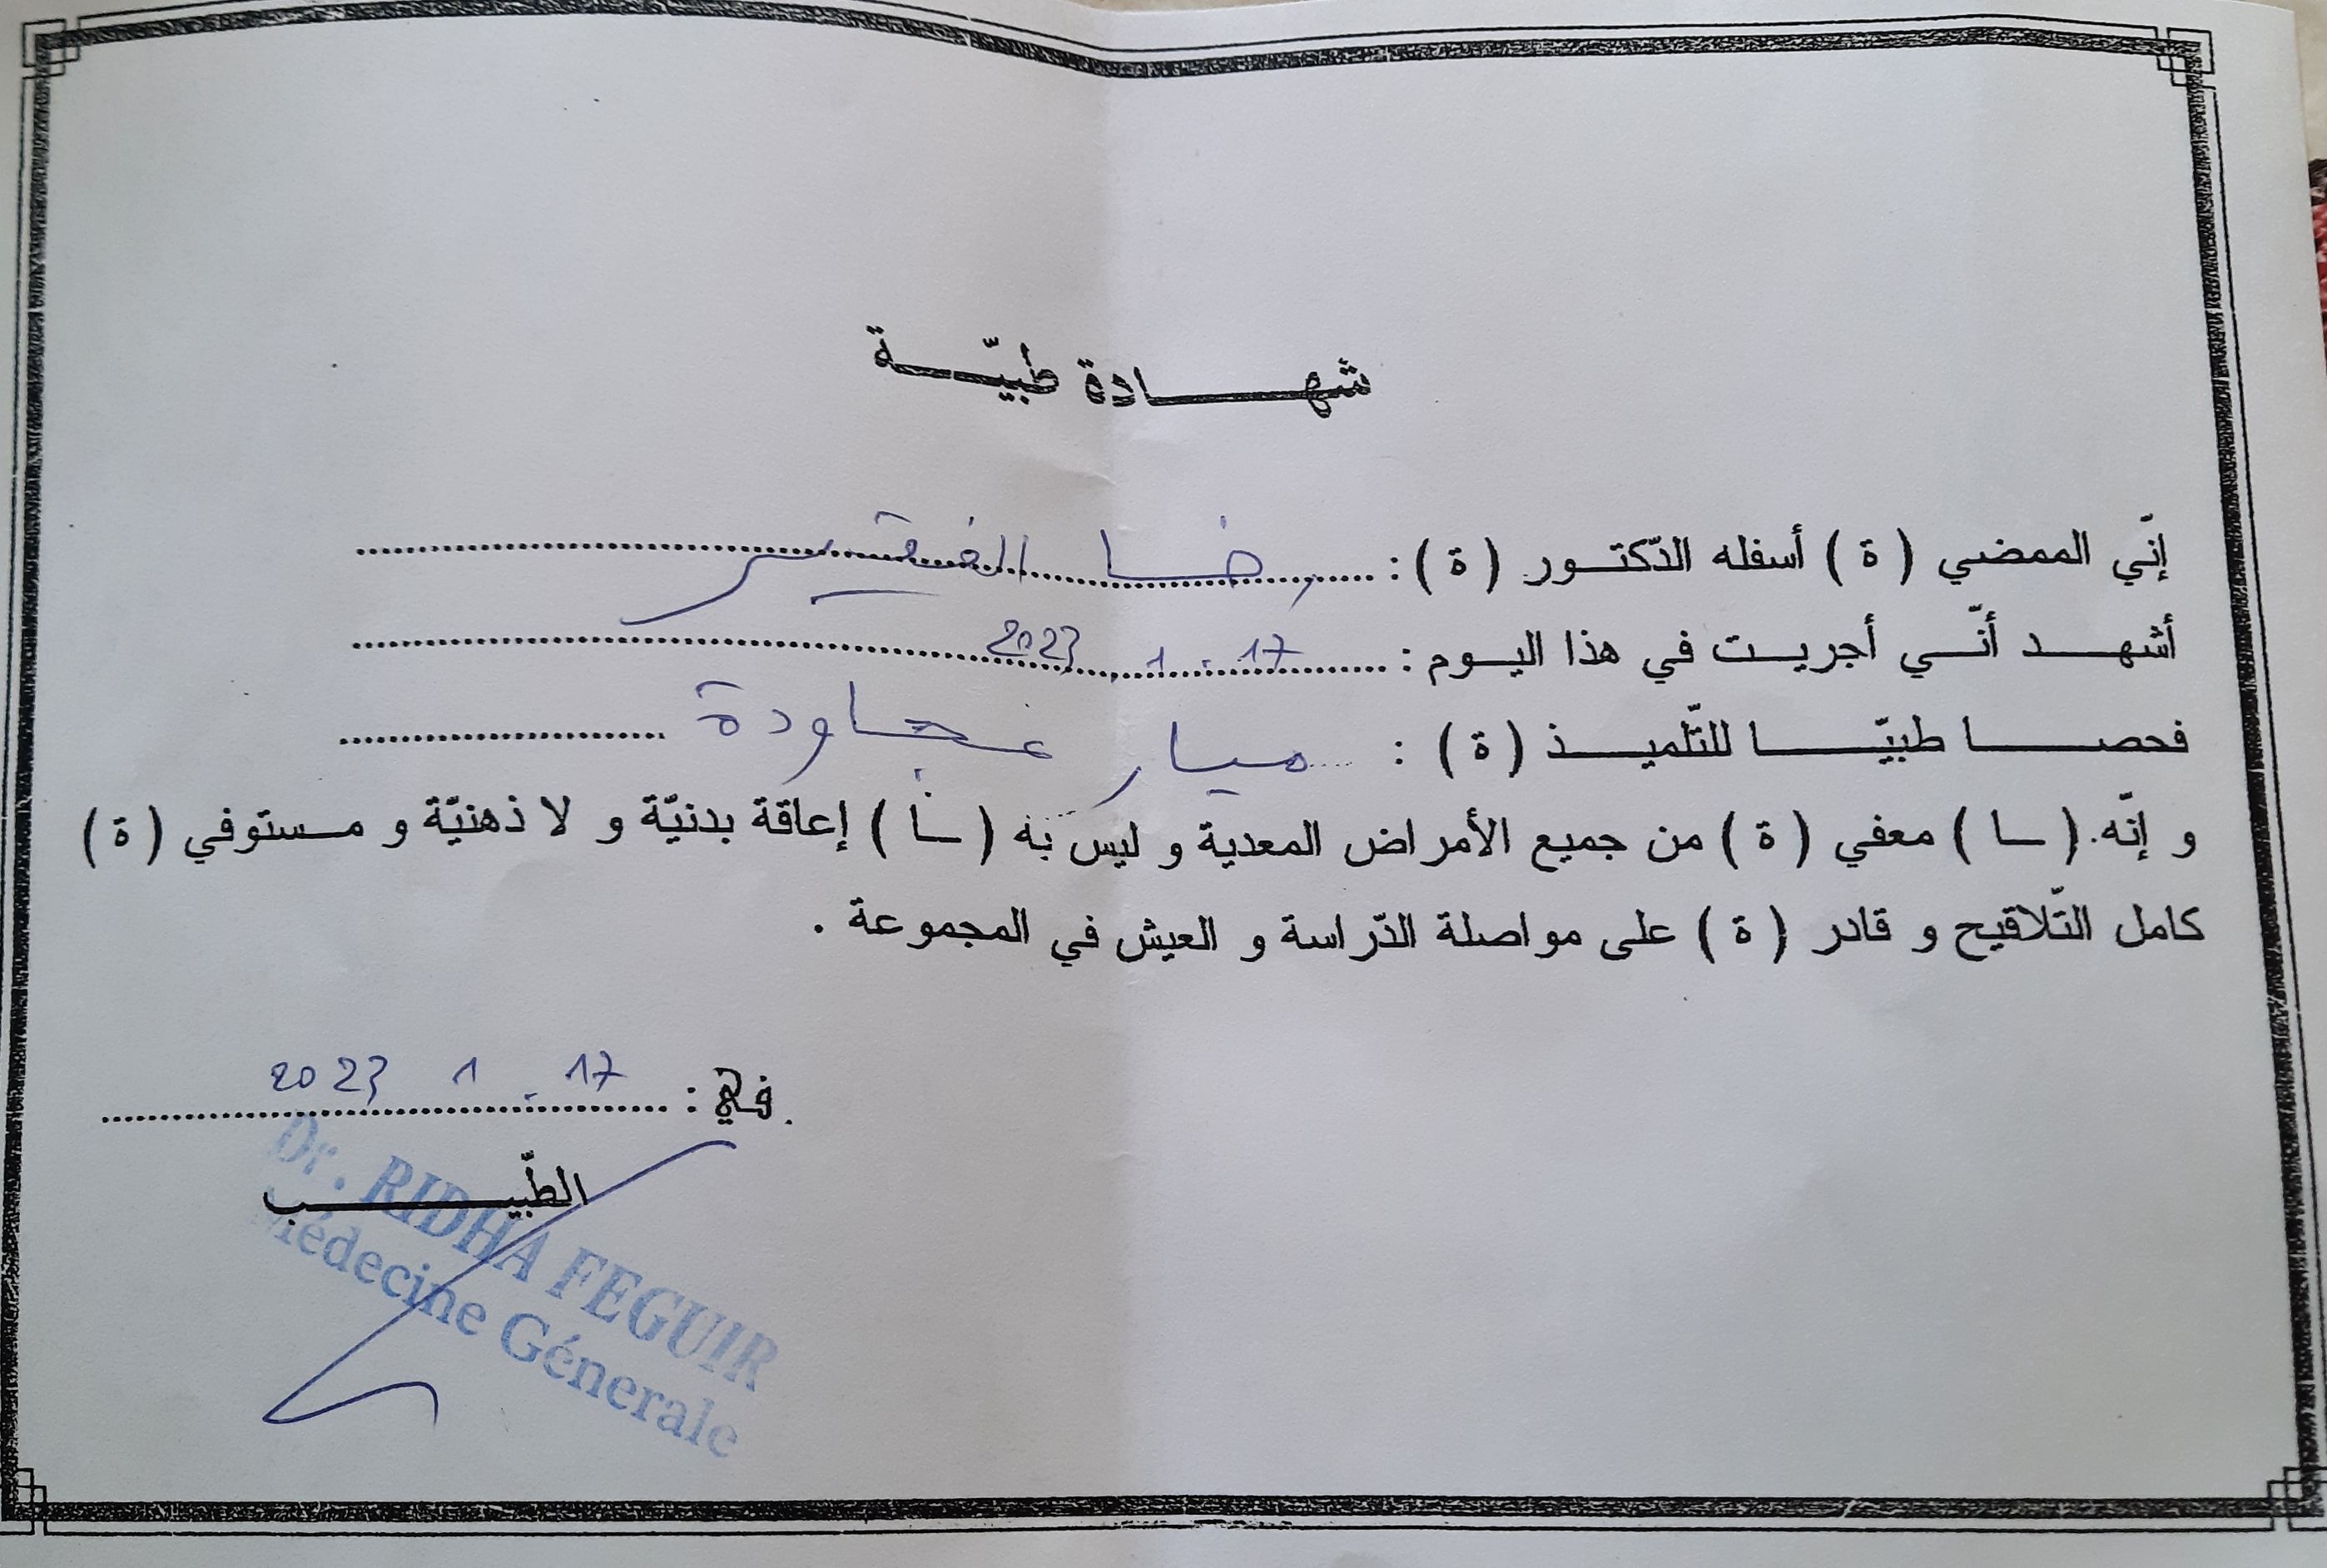 شهادة طبيّة
إنّي الممضي ( ة ) أسفله الدّكتور ( ة ) : رضا الفقير
أشهد أنّي أجريت في هذا اليوم : 17 . 1 . 2023
فحصا طبيّا للتّلميذ ( ة ) : ميار عجاودة
و إنّه ( ـا ) معفي ( ة ) من جميع الأمراض المعدية و ليس به ( ـا ) إعاقة بدنيّة و لا ذهنيّة و مستوفي ( ة )
كامل التّلاقيح و قادر ( ة ) على مواصلة الدّراسة و العيش في المجموعة .
في : 17 . 1 2023
الطّبيب
Dr. RIDHA FEGUIR
Médecine Génerale